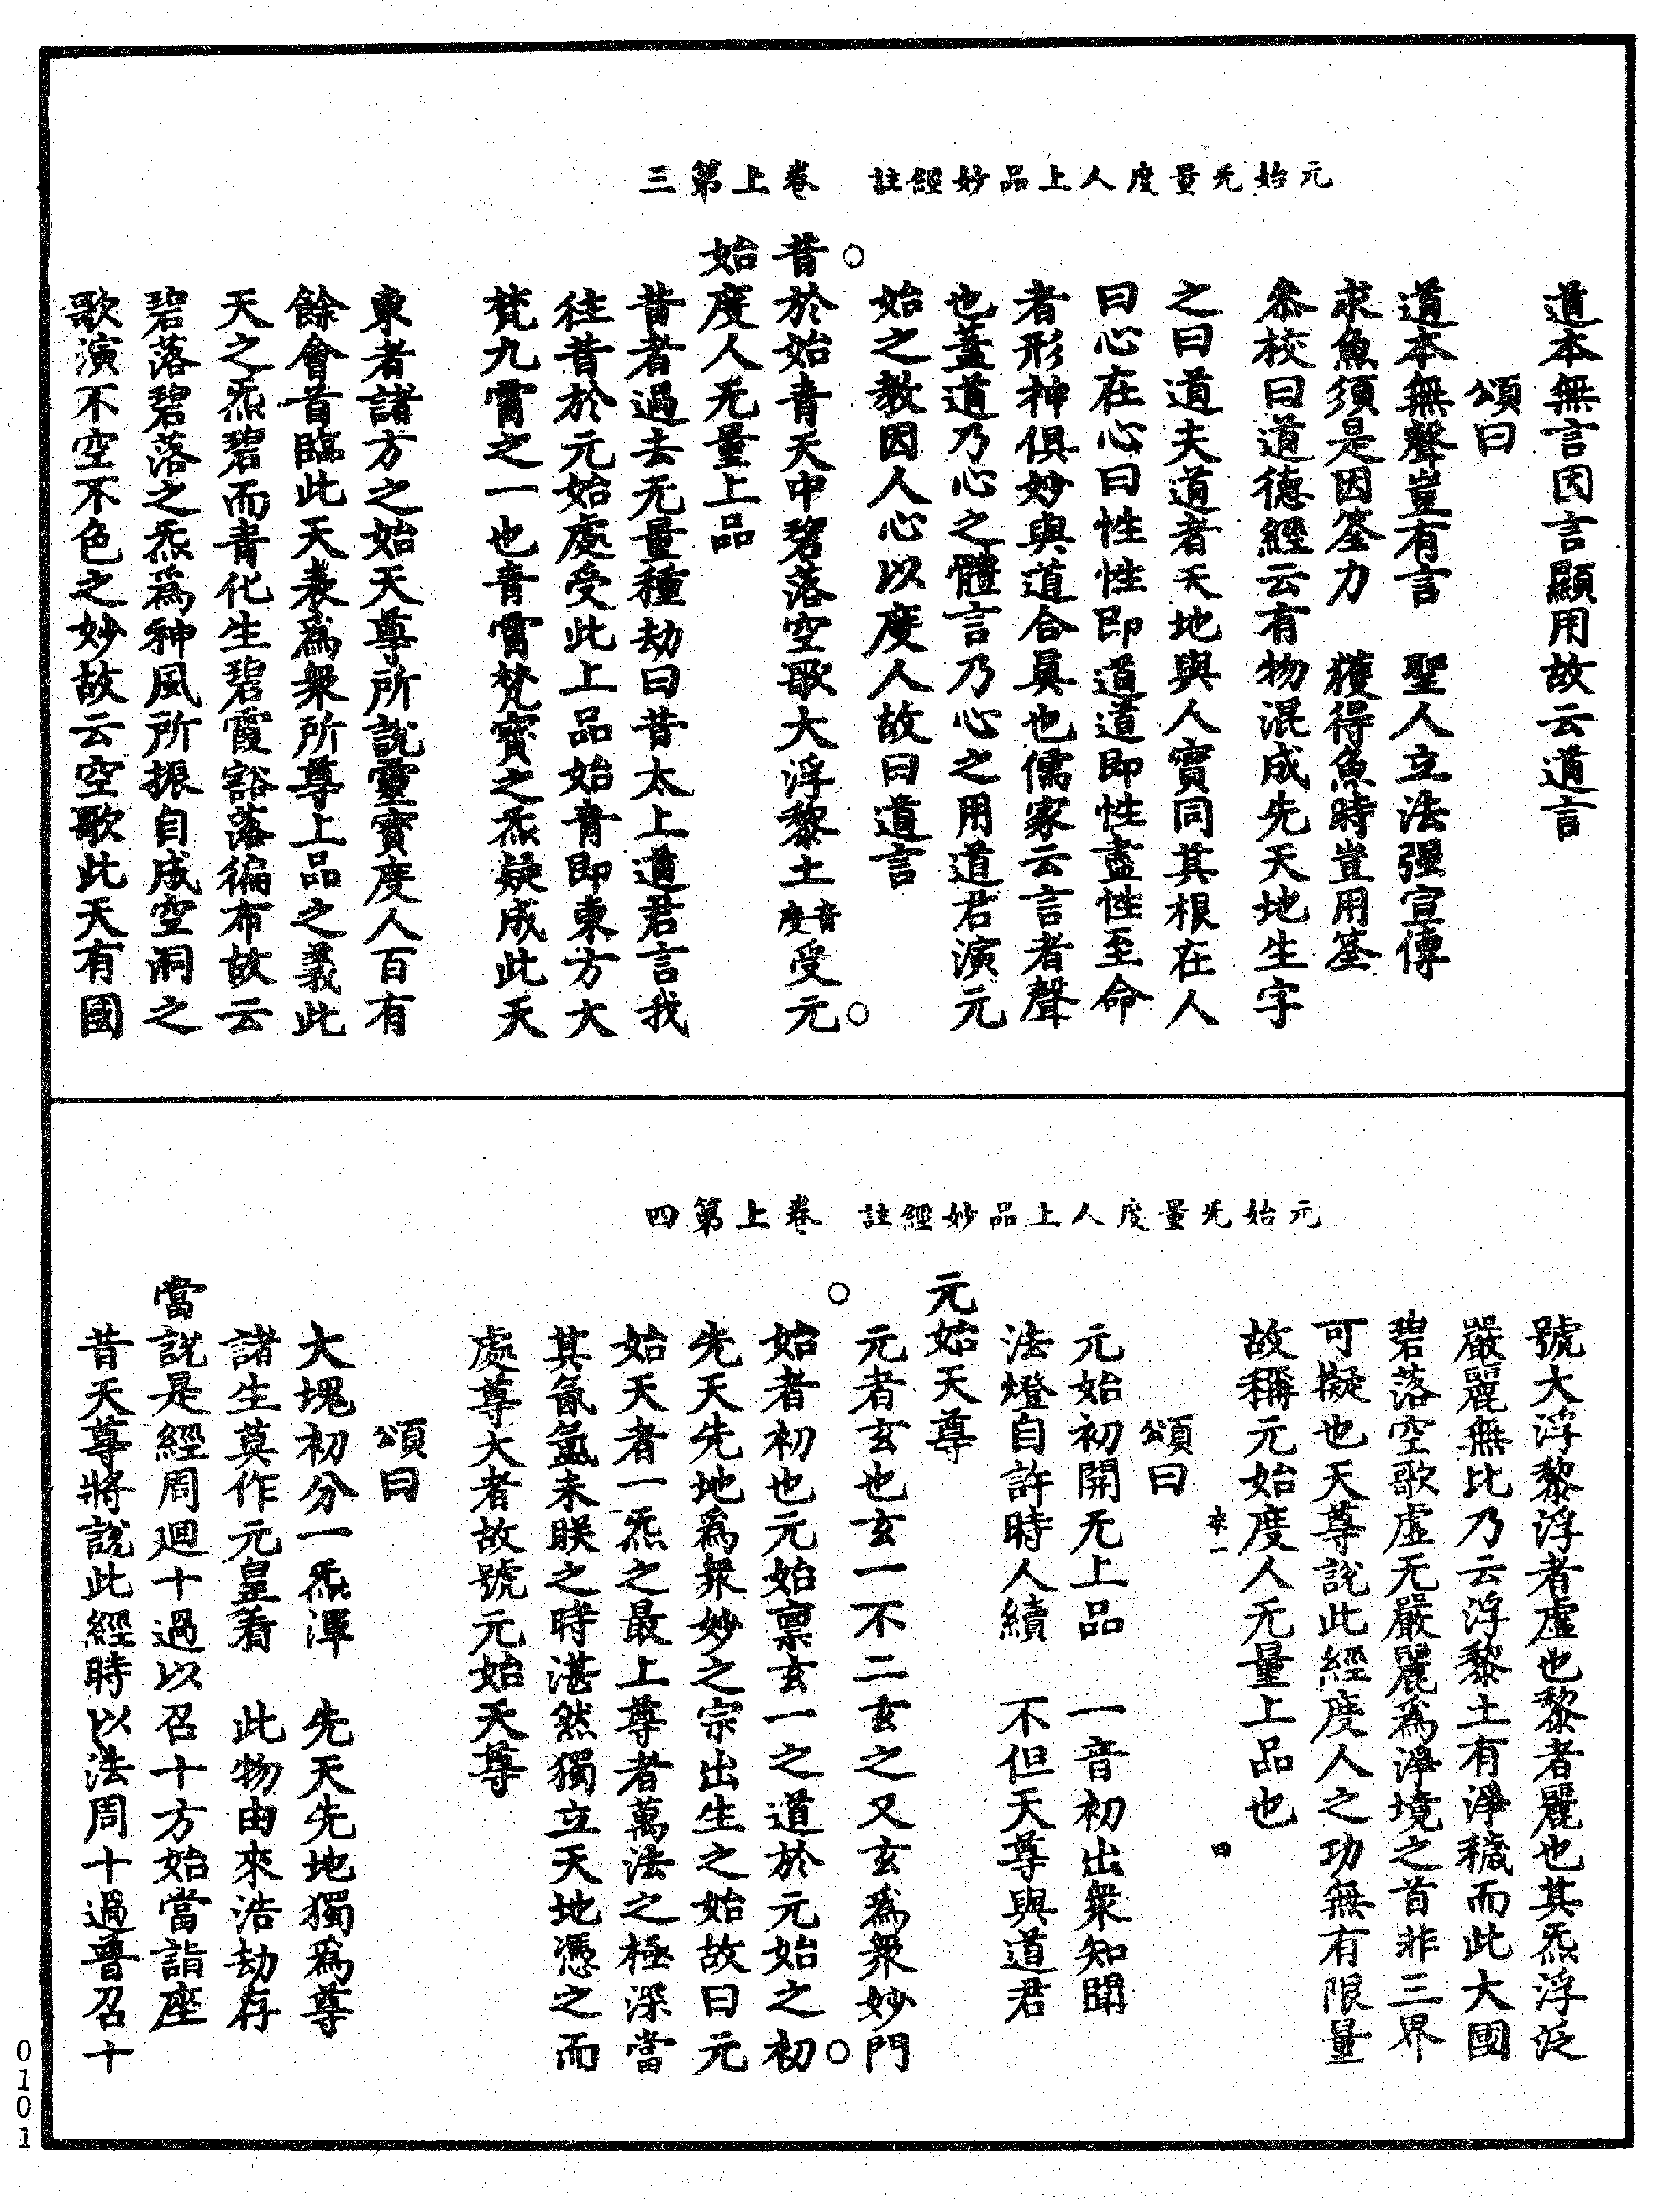 元始无量度人上品妙經註　卷上第三
道本無言因言顯用故云道言
頌曰
道本無聲豈有言　聖人立法强宣傳
求魚須是因筌力　獲得魚時豈用筌
叅校曰道德經云有物混成先天地生字
之曰道夫道者天地與人實同其根在人
曰心在心曰性性即道道即性盡性至命
者形神俱妙與道合真也儒家云言者聲
也蓋道乃心之體言乃心之用道君演元
始之教因人心以度人故曰道言
○昔於始青天中碧落空歌大浮黎土音度受元○
始度人无量上品
昔者過去无量種劫曰昔太上道君言我
往昔於元始處受此上品始青即東方大
梵九霄之一也青霄梵寶之炁凝成此天
東者諸方之始天尊所說靈寶度人百有
餘會首臨此天表為衆所尊上品之義此
天之炁碧而青化生碧霞豁落徧布故云
碧落碧落之炁為神風所振自成空洞之
歌演不空不色之妙故云空歌此天有國
元始无量度人上品妙經註　卷上第四
號大浮黎浮者虛也黎者麗也其炁浮泛
嚴麗無比乃云浮黎土有淨穢而此大國
碧落空歌虛无嚴麗為淨境之首非三界
可擬也天尊說此經度人之功無有限量
故稱元始度人无量上品也
四
頌曰
元始初開无上品　一音初出衆知聞
法燈自許時人續　不但天尊與道君
元始天尊
○元者玄也玄一不二玄之又玄為衆妙門○
始者初也元始稟玄一之道於元始之初
先天先地為衆妙之宗出生之始故曰元
始天者一炁之最上尊者萬法之極深當
其氤氳未朕之時湛然獨立天地憑之而
處尊大者故號元始天尊
頌曰
大塊初分一炁渾　先天先地獨為尊
諸生莫作元皇看　此物由來浩劫存
當說是經周迴十過以召十方始當詣座
昔天尊將說此經時以法周十過普召十
0101